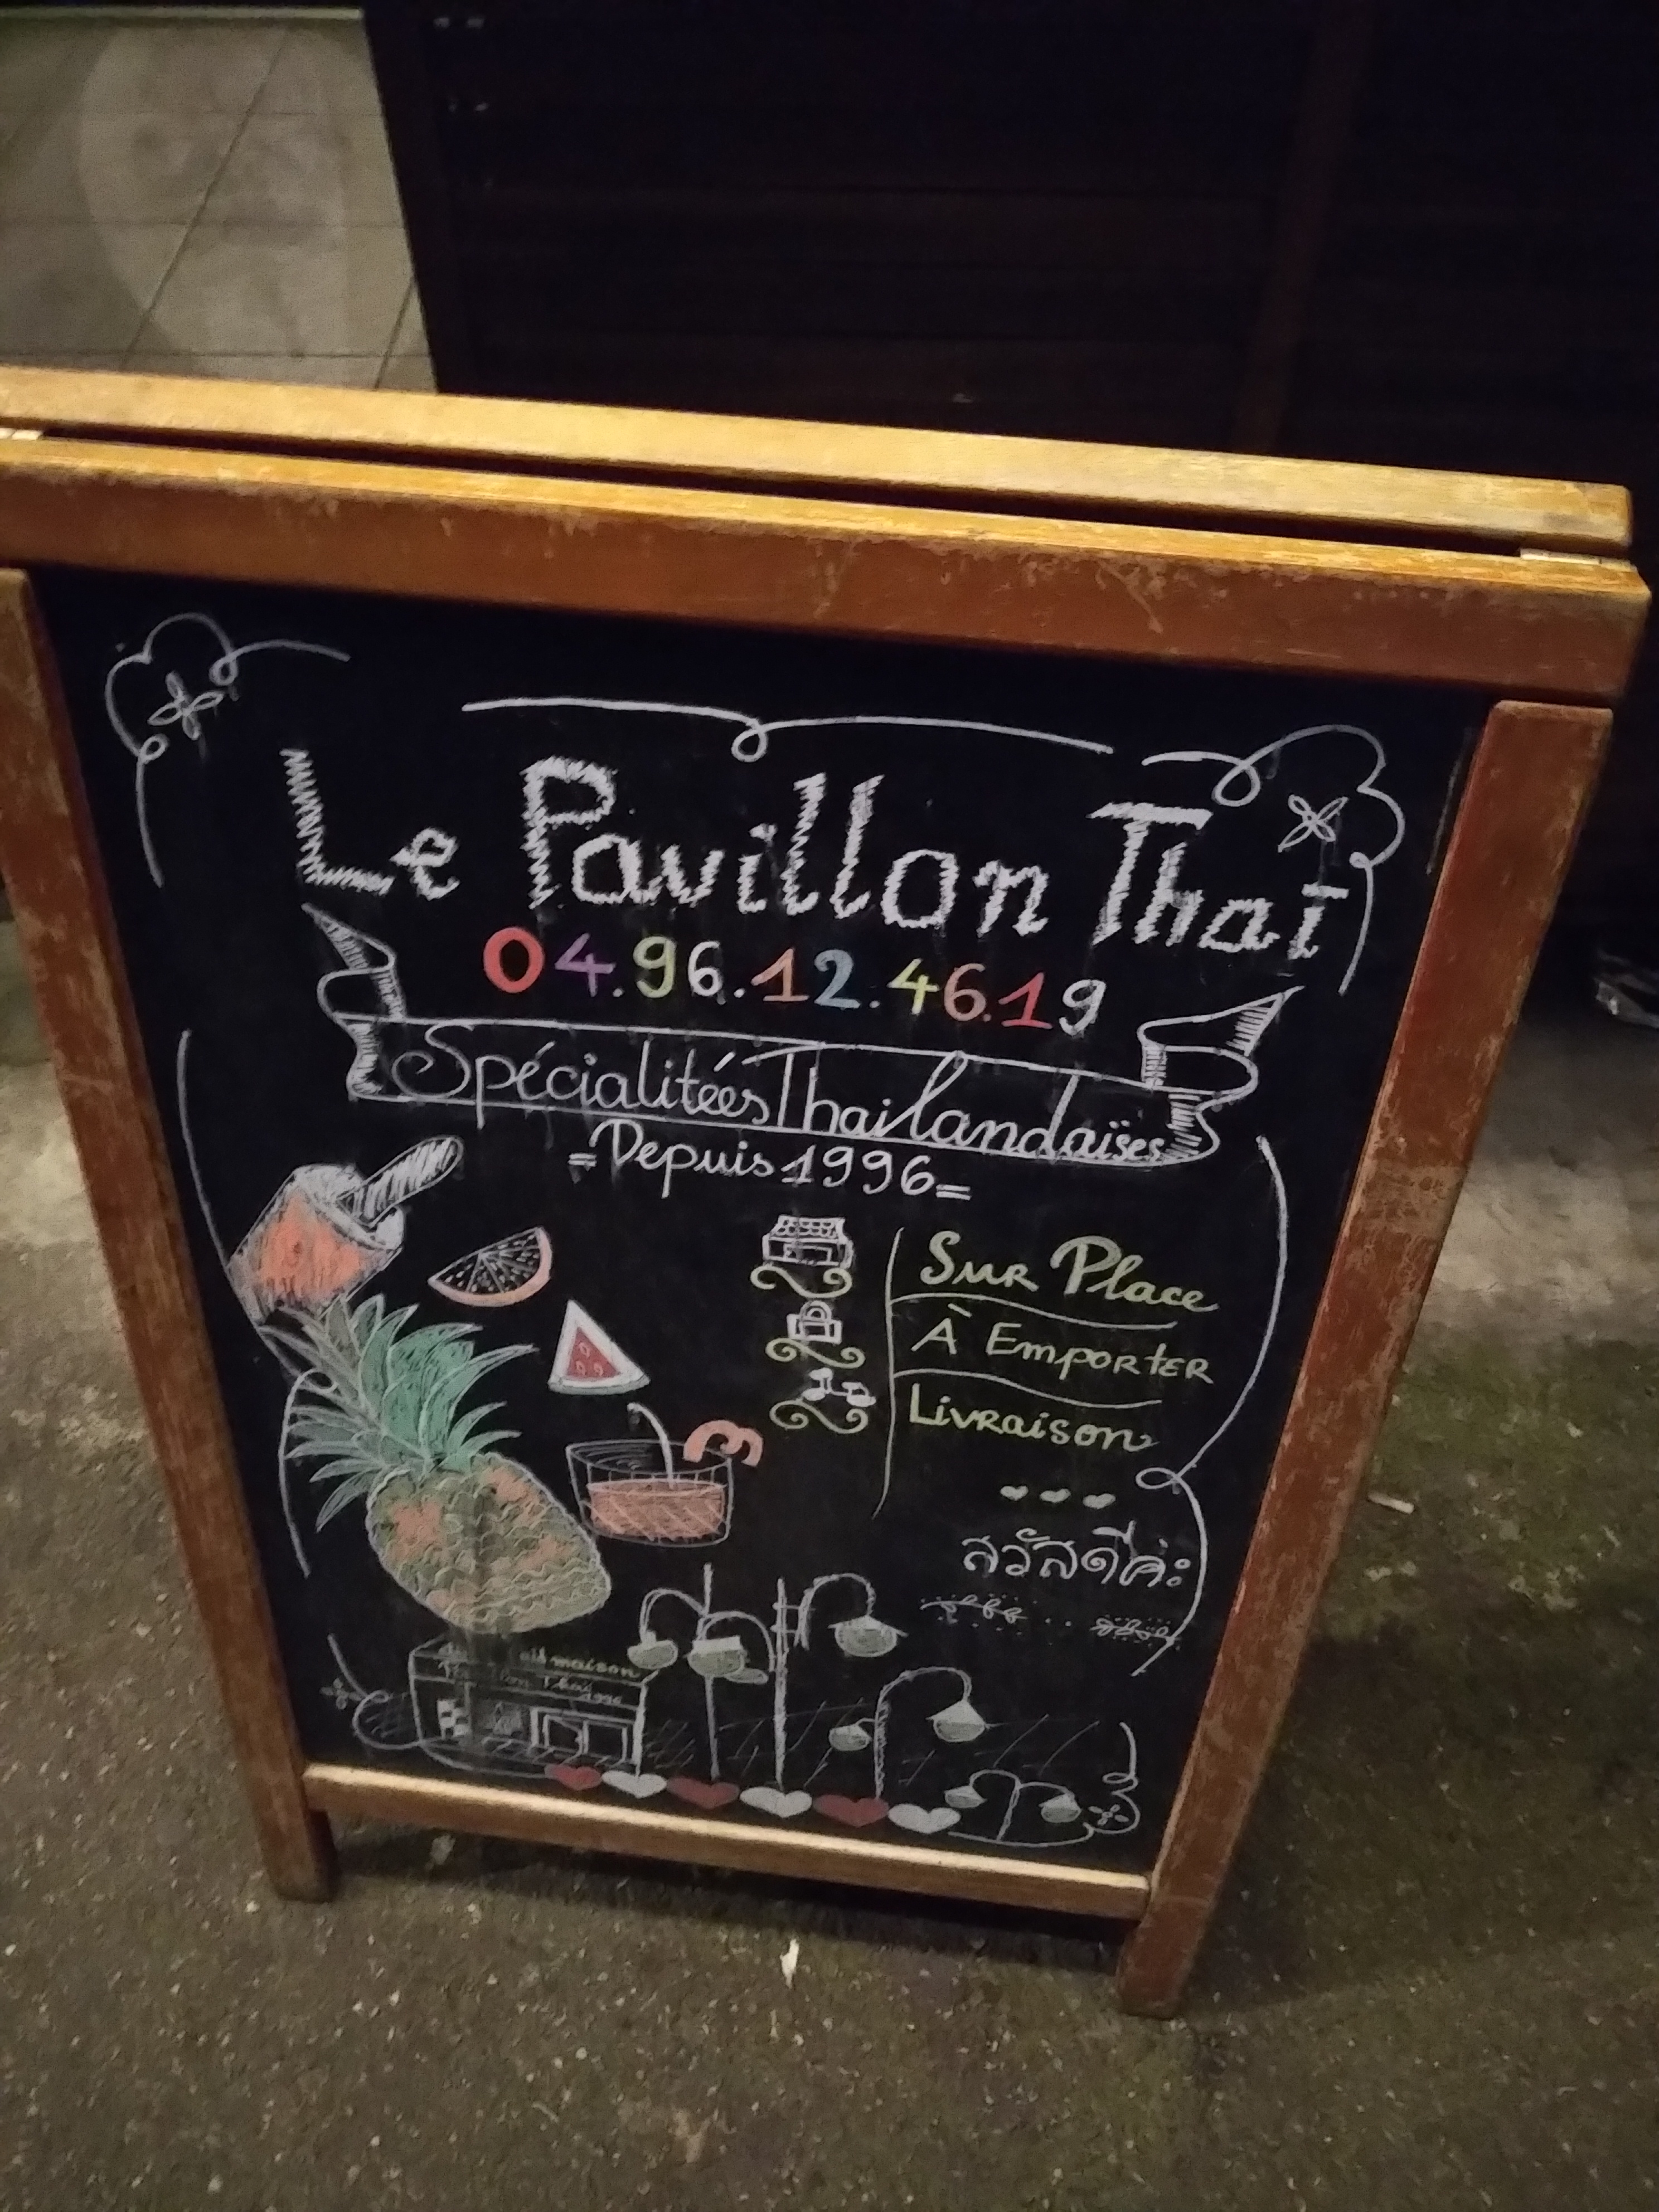 Le Pavillon Thaï
04.96.12.46.19
Spécialitées Thaïlandaïses
=Depuis 1996=
Sur Place
À Emporter
Livraison
สวัสดีค่ะ
maison